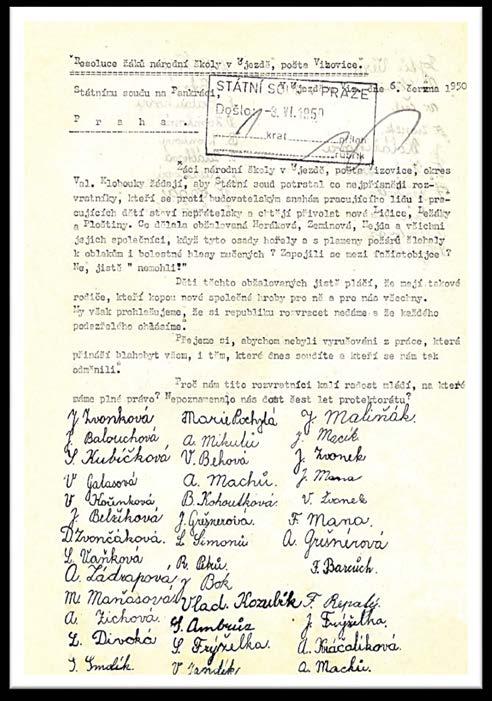 "Resoluce žáků národní školy v Újezdě, pošta Vizovice."
Státnímu soudu na Pankráci, V Újezdě, dne 6. června 1950
P r a h a
STÁTNÍ SOUD V PRAZE
Došlo: -8. VI. 1950
krát příloh
rubrik
Žáci národní školy v Újezdě, pošta Vizovice, okres
Val. Klobouky žádají, aby Státní soud potrstal co nejpřísněji roz-
vratníky, kteří se proti budovatelským snahám pracujícího lidu i pra-
cujících dětí staví nepřátelsky a chtějí přivolat nové Lidice, Ležáky
a Ploštiny. Co dělala obžalovaná Horáková, Zeminová, Nejda a všichni
jejich společníci, když tyto osady hořely a s plameny požárů šlehaly
k oblakům i bolestné hlasy mučených ? Zapojili se mezi fašistobijce ?
Ne, jistě " nemohli!"
Děti těchto obžalovaných jistě pláčí, že mají takové
rodiče, kteří kopou nové společné hroby pro ně a pro nás všechny.
My však prohlašujeme, že si republiku rozvracet nedáme a že každého
podezřelého ohlásíme.
Přejeme si, abychom nebyli vyrušováni z práce, která
přináší blahobyt všem, i těm, které dnes soudíte a kteří se nám tak
odměnili.
Proč nám tito rozvratníci kalí radost mládí, na které
máme plné právo? Nepoznamenalo nás dost šest let protektorátu?
J Zvonková Marie Pochylá J. Maliňák.
J. Balouchová A. Mikulů J. Macík
S. Kubíčková V. Běhová J. Zvonek
V Galasová A. Machů. J. Mana
V Kořínková B. Kohoutková. V. Zvonek
J. Belžíková J. Grešnerová. F. Mana.
D. Zvončáková. L. Šimonů A. Grešnerová
L. Vaňková R. Petrů. F. Barůch.
A. Zádrapová J Bok
M. Maňasová Vlad. Kozubík F. Řepatý.
A. Zichová. S. Ambrůz J. Frýželka.
L. Divoká S. Frýželka. A. Kráčalíková.
J. Smolík. V Jandík A. Machů.